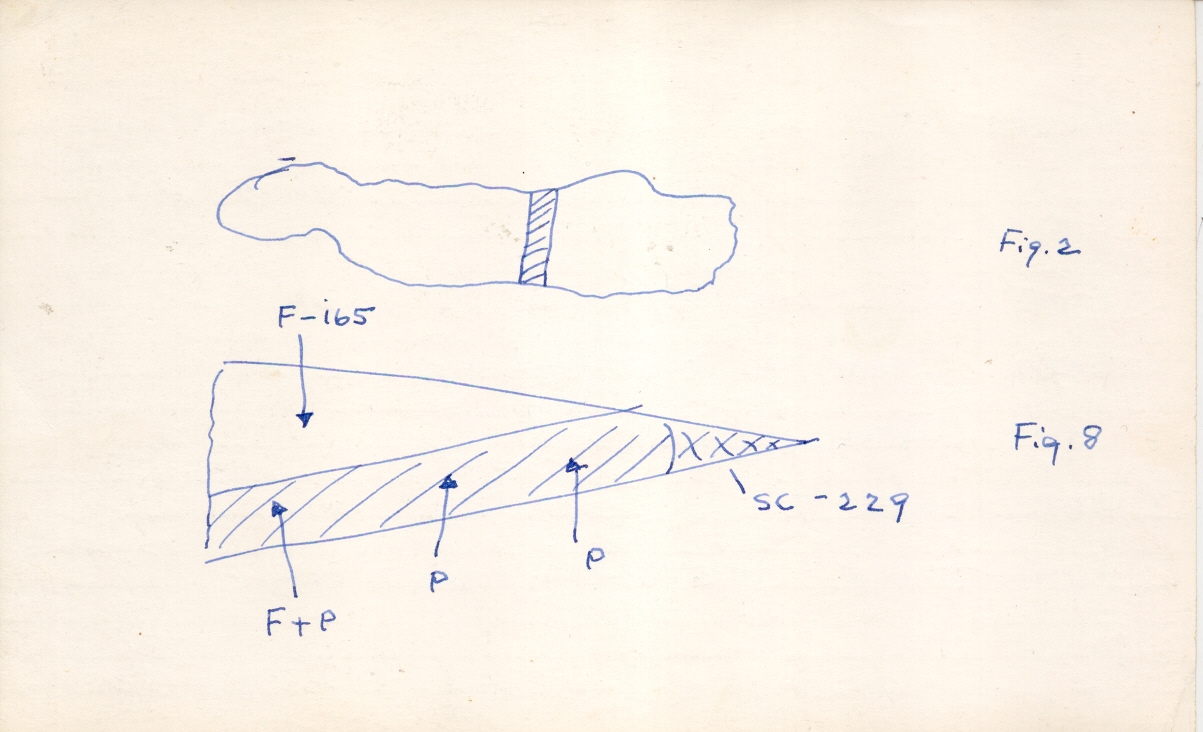 Fig. 2
F-i65
Fig. 8
SC-229
P
P
F+P